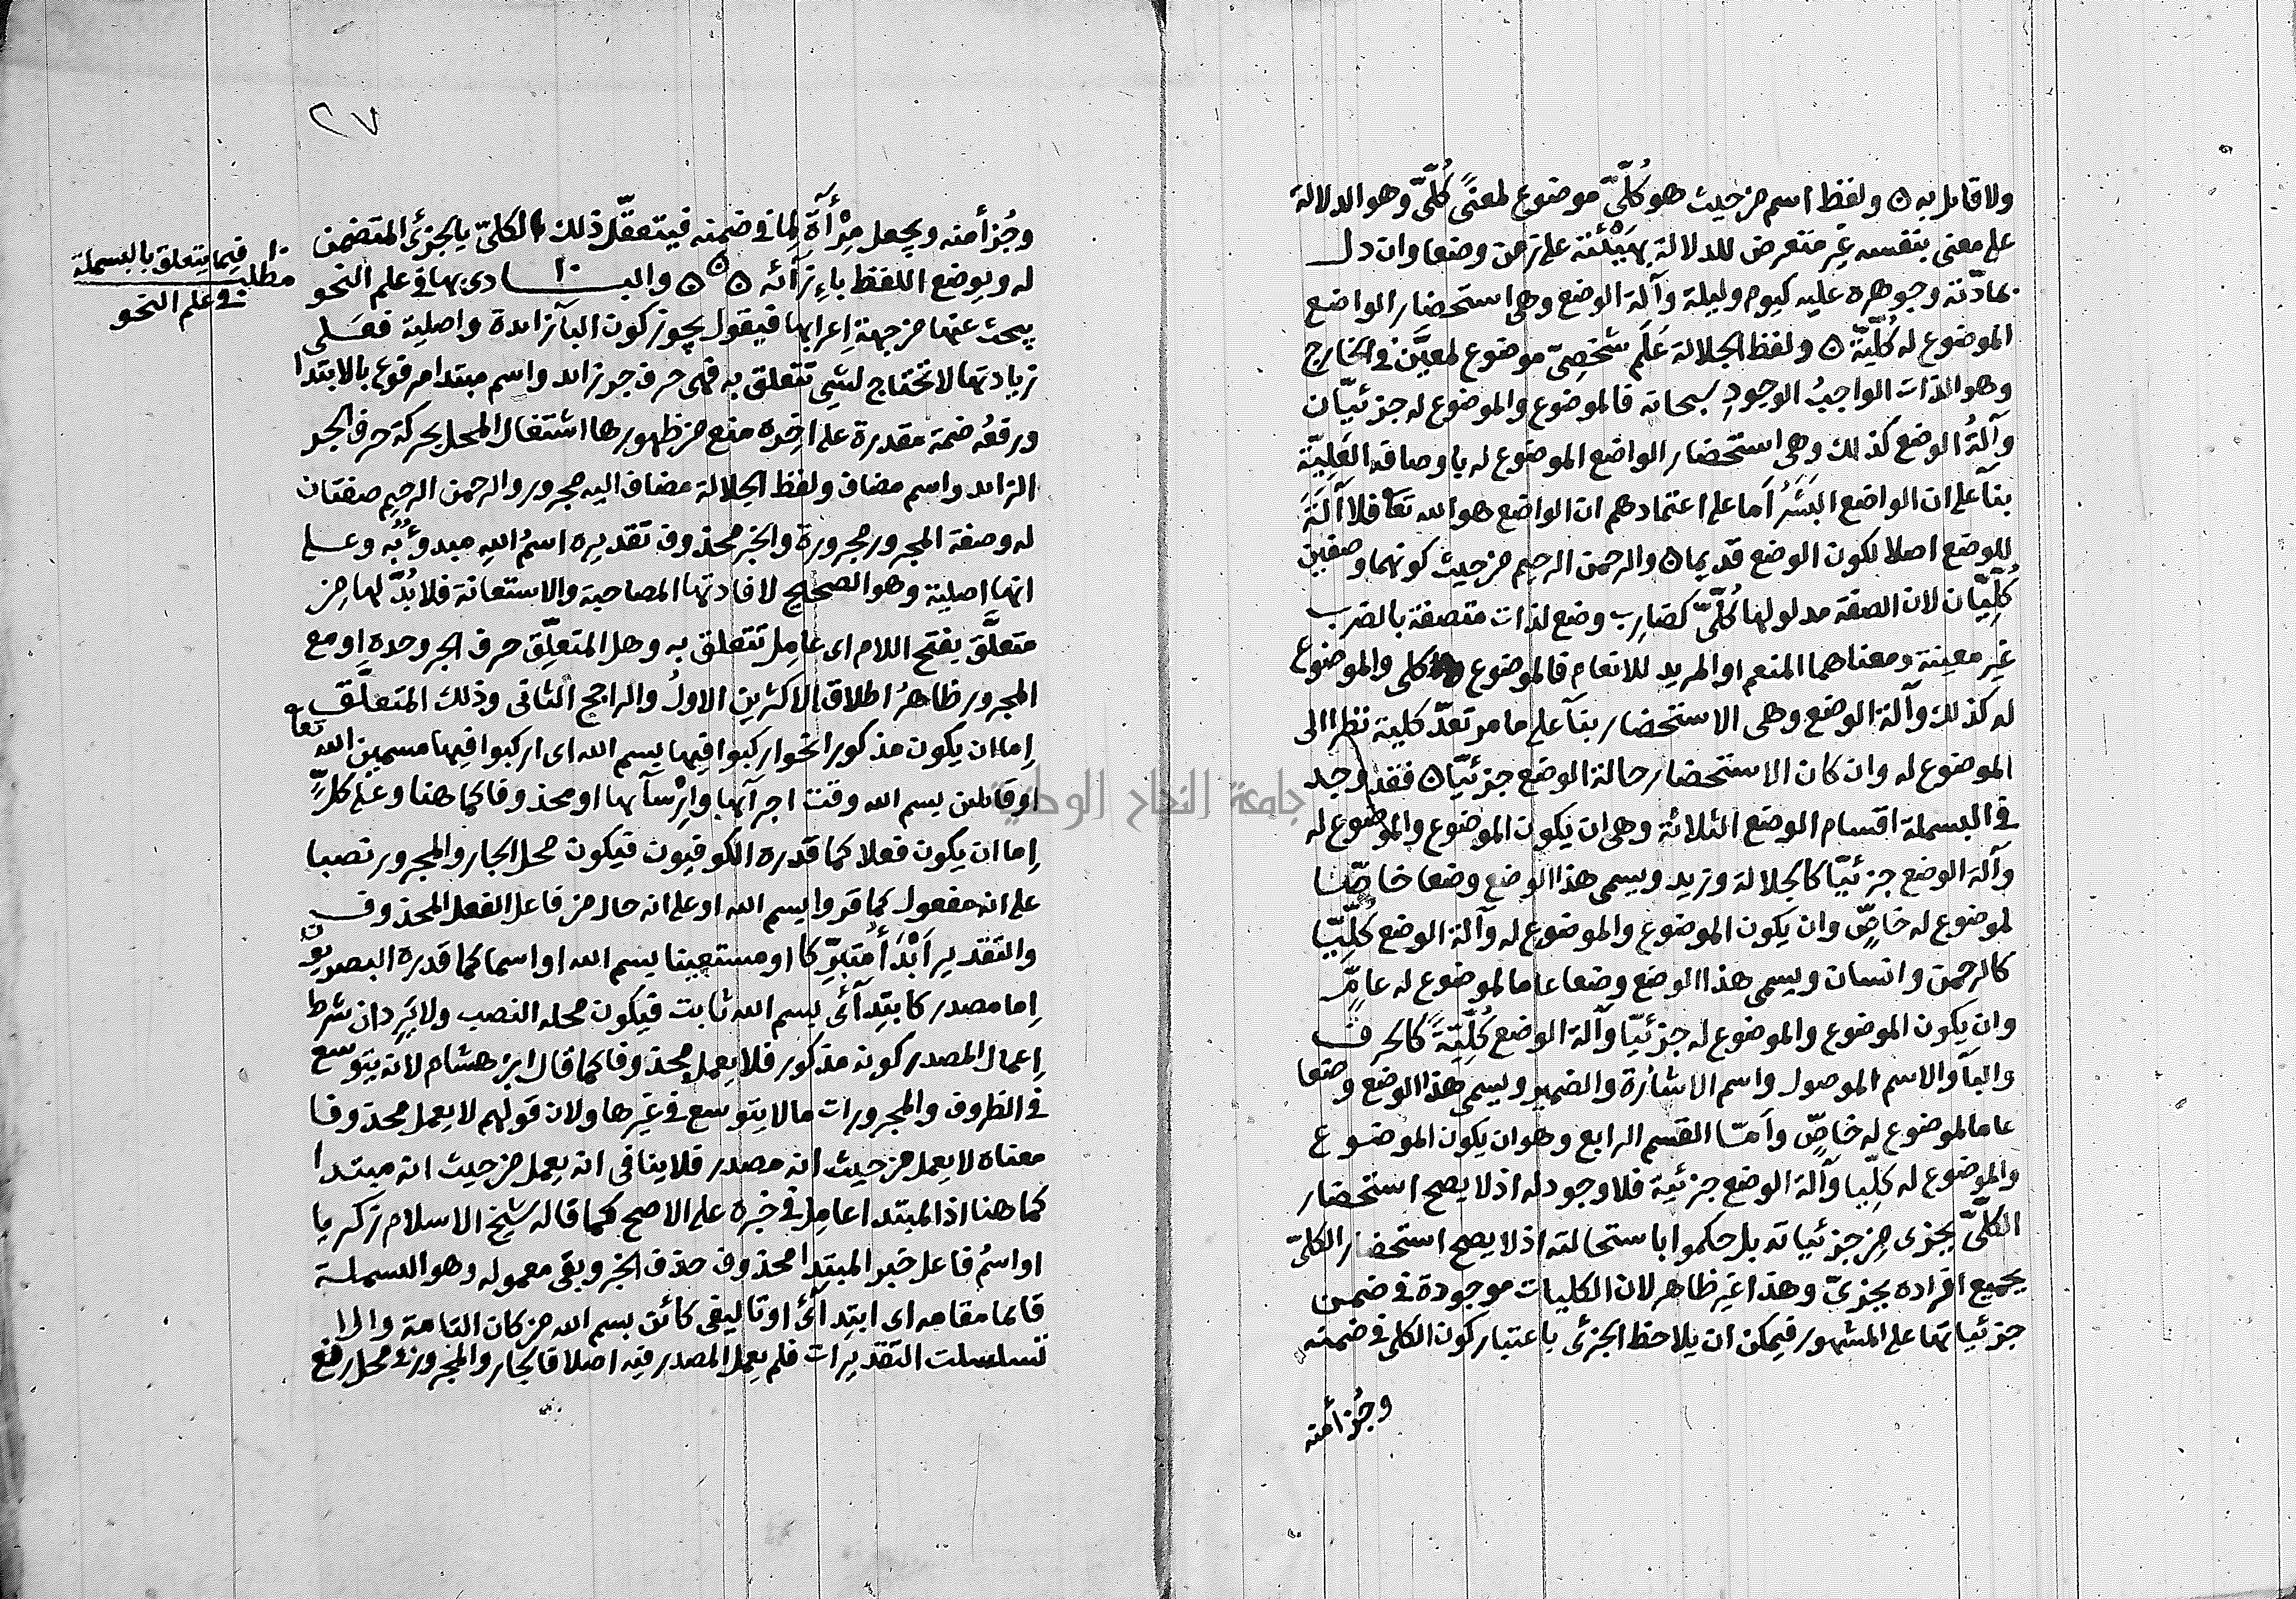 ولا قابل به ٥ ولفظ اسم من حيث هو كُلّىّ موضوع لمعنًى كُلّىّ وهو الدلالة
على معنى بنفسه غير متعرض للدلالة بهَيْئته على زمن وضعا وان دل
بمادّته وجوهره عليه كيوم وليلة وآلة الوضع وهى استحضار الواضع
الموضوع له كُلّيّة ٥ ولفظ الجلالة عَلَم شخصىّ موضوع لمعيَّن فى الخارج
وهو الذات الواجبُ الوجودِ سبحانه فالموضوع والموضوع له جزئيّان
وآلةُ الوضع كذلك وهى استحضار الواضع الموضوع له باوصافه العَلِيّة
بنآ على ان الواضع البَشَرُ أما على اعتمادهم ان الواضع هو الله تعا فلا آلَةَ
للوضع اصلا لكون الوضع قديما ٥ والرحمن الرحيم من حيث كونهما وصفين
كُلّيّان لان الصفة مدلولها كُلّىّ كضارِب وضع لذات متصفة بالضرب
غير معينة ومعناهما المنعم او المريد للانعام فالموضوع كلى والموضوع
له كذلك وآلة الوضع وهى الاستحضار بنآ على ما مر تعدّ كلية نظرا الى
الموضوع له وان كان الاستحضار حالة الوضع جزئيّا ٥ فقد وجد
فى البسملة اقسام الوضع الثلاثة وهى ان يكون الموضوع والموضوع له
وآلة الوضع جزئيّا كالجلالة وزيد ويسمى هذا الوضع وضعا خاصّا
لموضوع له خاصٍّ وان يكون الموضوع والموضوع له وآلة الوضع كُلّيّا
كالرحمن وانسان ويسمى هذا الوضع وضعا عاما لموضوع له عامٍّ
وان يكون الموضوع والموضوع له جزئيّا وآلة الوضع كُلّيّةً كالحرف
والبآ والاسم الموصول واسم الاشارة والضمير ويسمى هذا الوضع وضعا
عاما لموضوع له خاصٍّ وأمّا القسم الرابع وهو ان يكون الموضوع
والموضوع له كلّيا وآلة الوضع جزئية فلا وجود له اذ لا يصح استحضار
الكلّىّ بجزئ من جزئياته بل حكموا باستحالته اذ لا يصح استحضار الكلىّ
بجميع افراده بجزئىّ وهذا غير ظاهر لان الكليات موجودة فى ضمن
جزئياتها على المشهور فيمكن ان يلاحظ الجزئى باعتبار كون الكلى فى ضمنه
وجُزأ منه
٢٧
وجُزأ منه ويجعل مِرْآةً لِما فى ضمنه فيتعقّل ذلك الكلىّ بالجزئى المتضمن
له ويوضع اللفظ باءِزآئه ٥ ٥ ٥ والبادى بها فى علم النحو
يبحث عنها من جهة إعرابها فيقول يجوز كون البآ زائدة واصلية فعلى
زيادتها لا تحتاج لشى تتعلق به فهى حرف جر زائد واسم مبتدا مرفوع بالابتدا
ورفعُه ضمة مقدرة على اخره منع من ظهورها اشتغال المحل بحركة حرف الجر
الزائد واسم مضاف ولفظ الجلالة مضاف اليه مجرور والرحمن الرحيم صفتان
له وصفة المجرور مجرورة والخبر محذوف تقديره اسمُ اللهِ مبدوٌء به وعلى
انها اصلية وهو الصحيح لافادتها المصاحبة والاستعانة فلا بُدّ لها من
متعلَّق بفتح اللام اى عامِل تتعلق به وهل المتعلِّق حرف الجر وحده او مع
المجرور ظاهرُ اطلاق الاكثرين الاولُ والراجح الثانى وذلك المتعلَّق
إما ان يكون مذكورا نحو اركبوا فيها بسم الله اى اركبوا فيها مسمين الله تعا
او قائلين بسم الله وقت اجرآئها وإرْسآئها او محذوفا كما هنا وعلى كلٍّ
إما ان يكون فعلا كما قدره الكوفيون فيكون محل الجار والمجرور نصبا
على انه مفعول كما قروا بسم الله او على انه حال من فاعل الفعل المحذوف
والتقدير اَبْدَأ مُتبرّكا او مستعينا بسم الله او اسما كما قدره البصريون
إما مصدر كابتِدآئى بسم الله ثابت فيكون محله النصب ولا يَرِد ان شرط
إعمال المصدر كونه مذكور فلا يعمل محذوفا كما قال ابن هشام لانه يتوسع
فى الظروف والمجرورات ما لا يتوسع فى غيرها ولان قولهم لا يعمل محذوفا
معناه لا يعمل من حيث انه مصدر فلا ينافى انه يعمل من حيث انه مبتدا
كما هنا اذ المبتدا عامِل فى خبره على الاصح كما قاله شيخ الاسلام زكريا
او اسمُ فاعل خبر المبتدا محذوف حذف الخبر وبقى معموله وهو البسملة
قائما مقامه اى ابتدآئى او تاليفى كائن بسم الله من كان التامة والا
تسلسلت التقديرات فلم يعمل المصدر فيه اصلا فالجار والمجرور فى محل رفع
مطلب فيما يتعلق بالبسملة
فى علم النحو
جامعة النجاح الوطنية